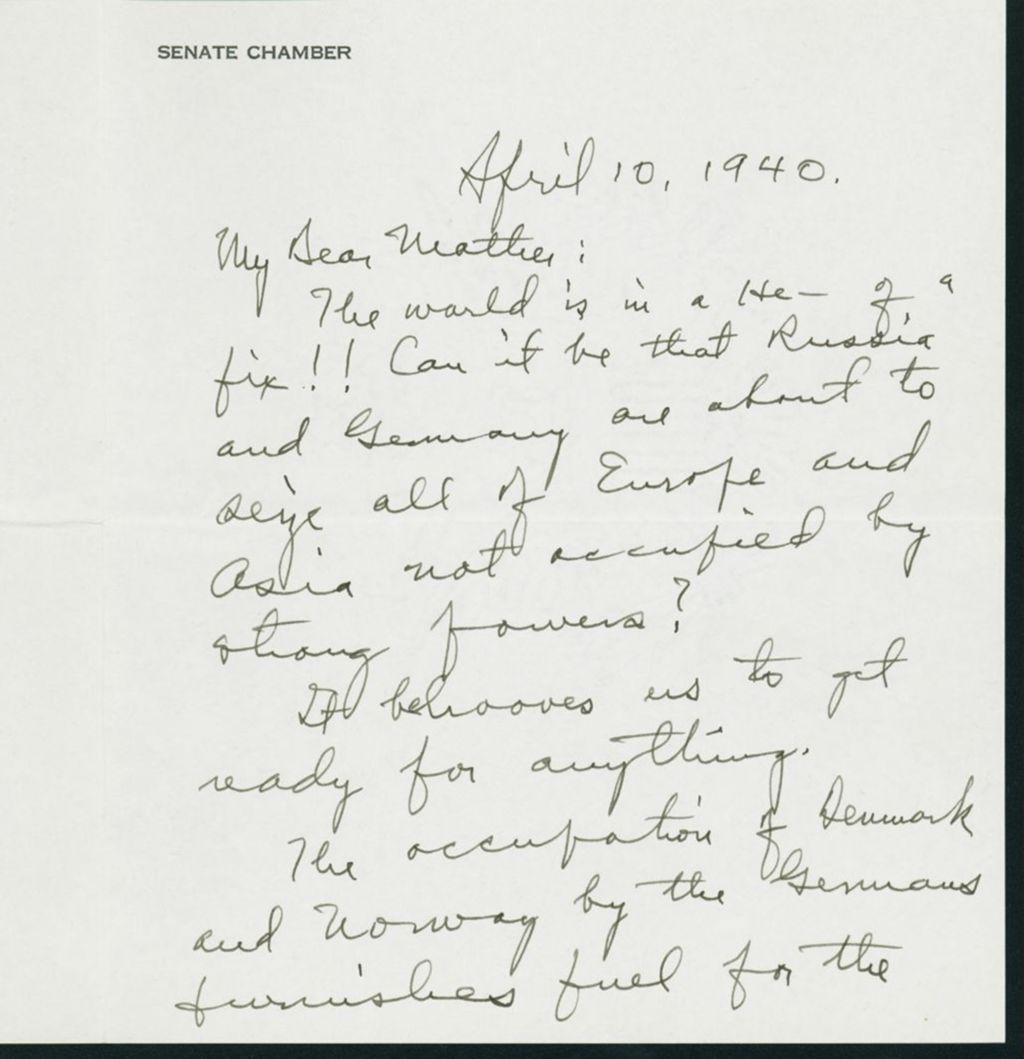 SENATE CHAMBER
April 10, 1940.
My Dear Mather:
The world is in a He— of a
fix!! Can it be that Russia
and Germany are about to
seize all of Europe and
Asia not occupied by
strong powers?
It behooves us to get
ready for anything.
The occupation of Denmark
and Norway by the Germans
furnishes fuel for the